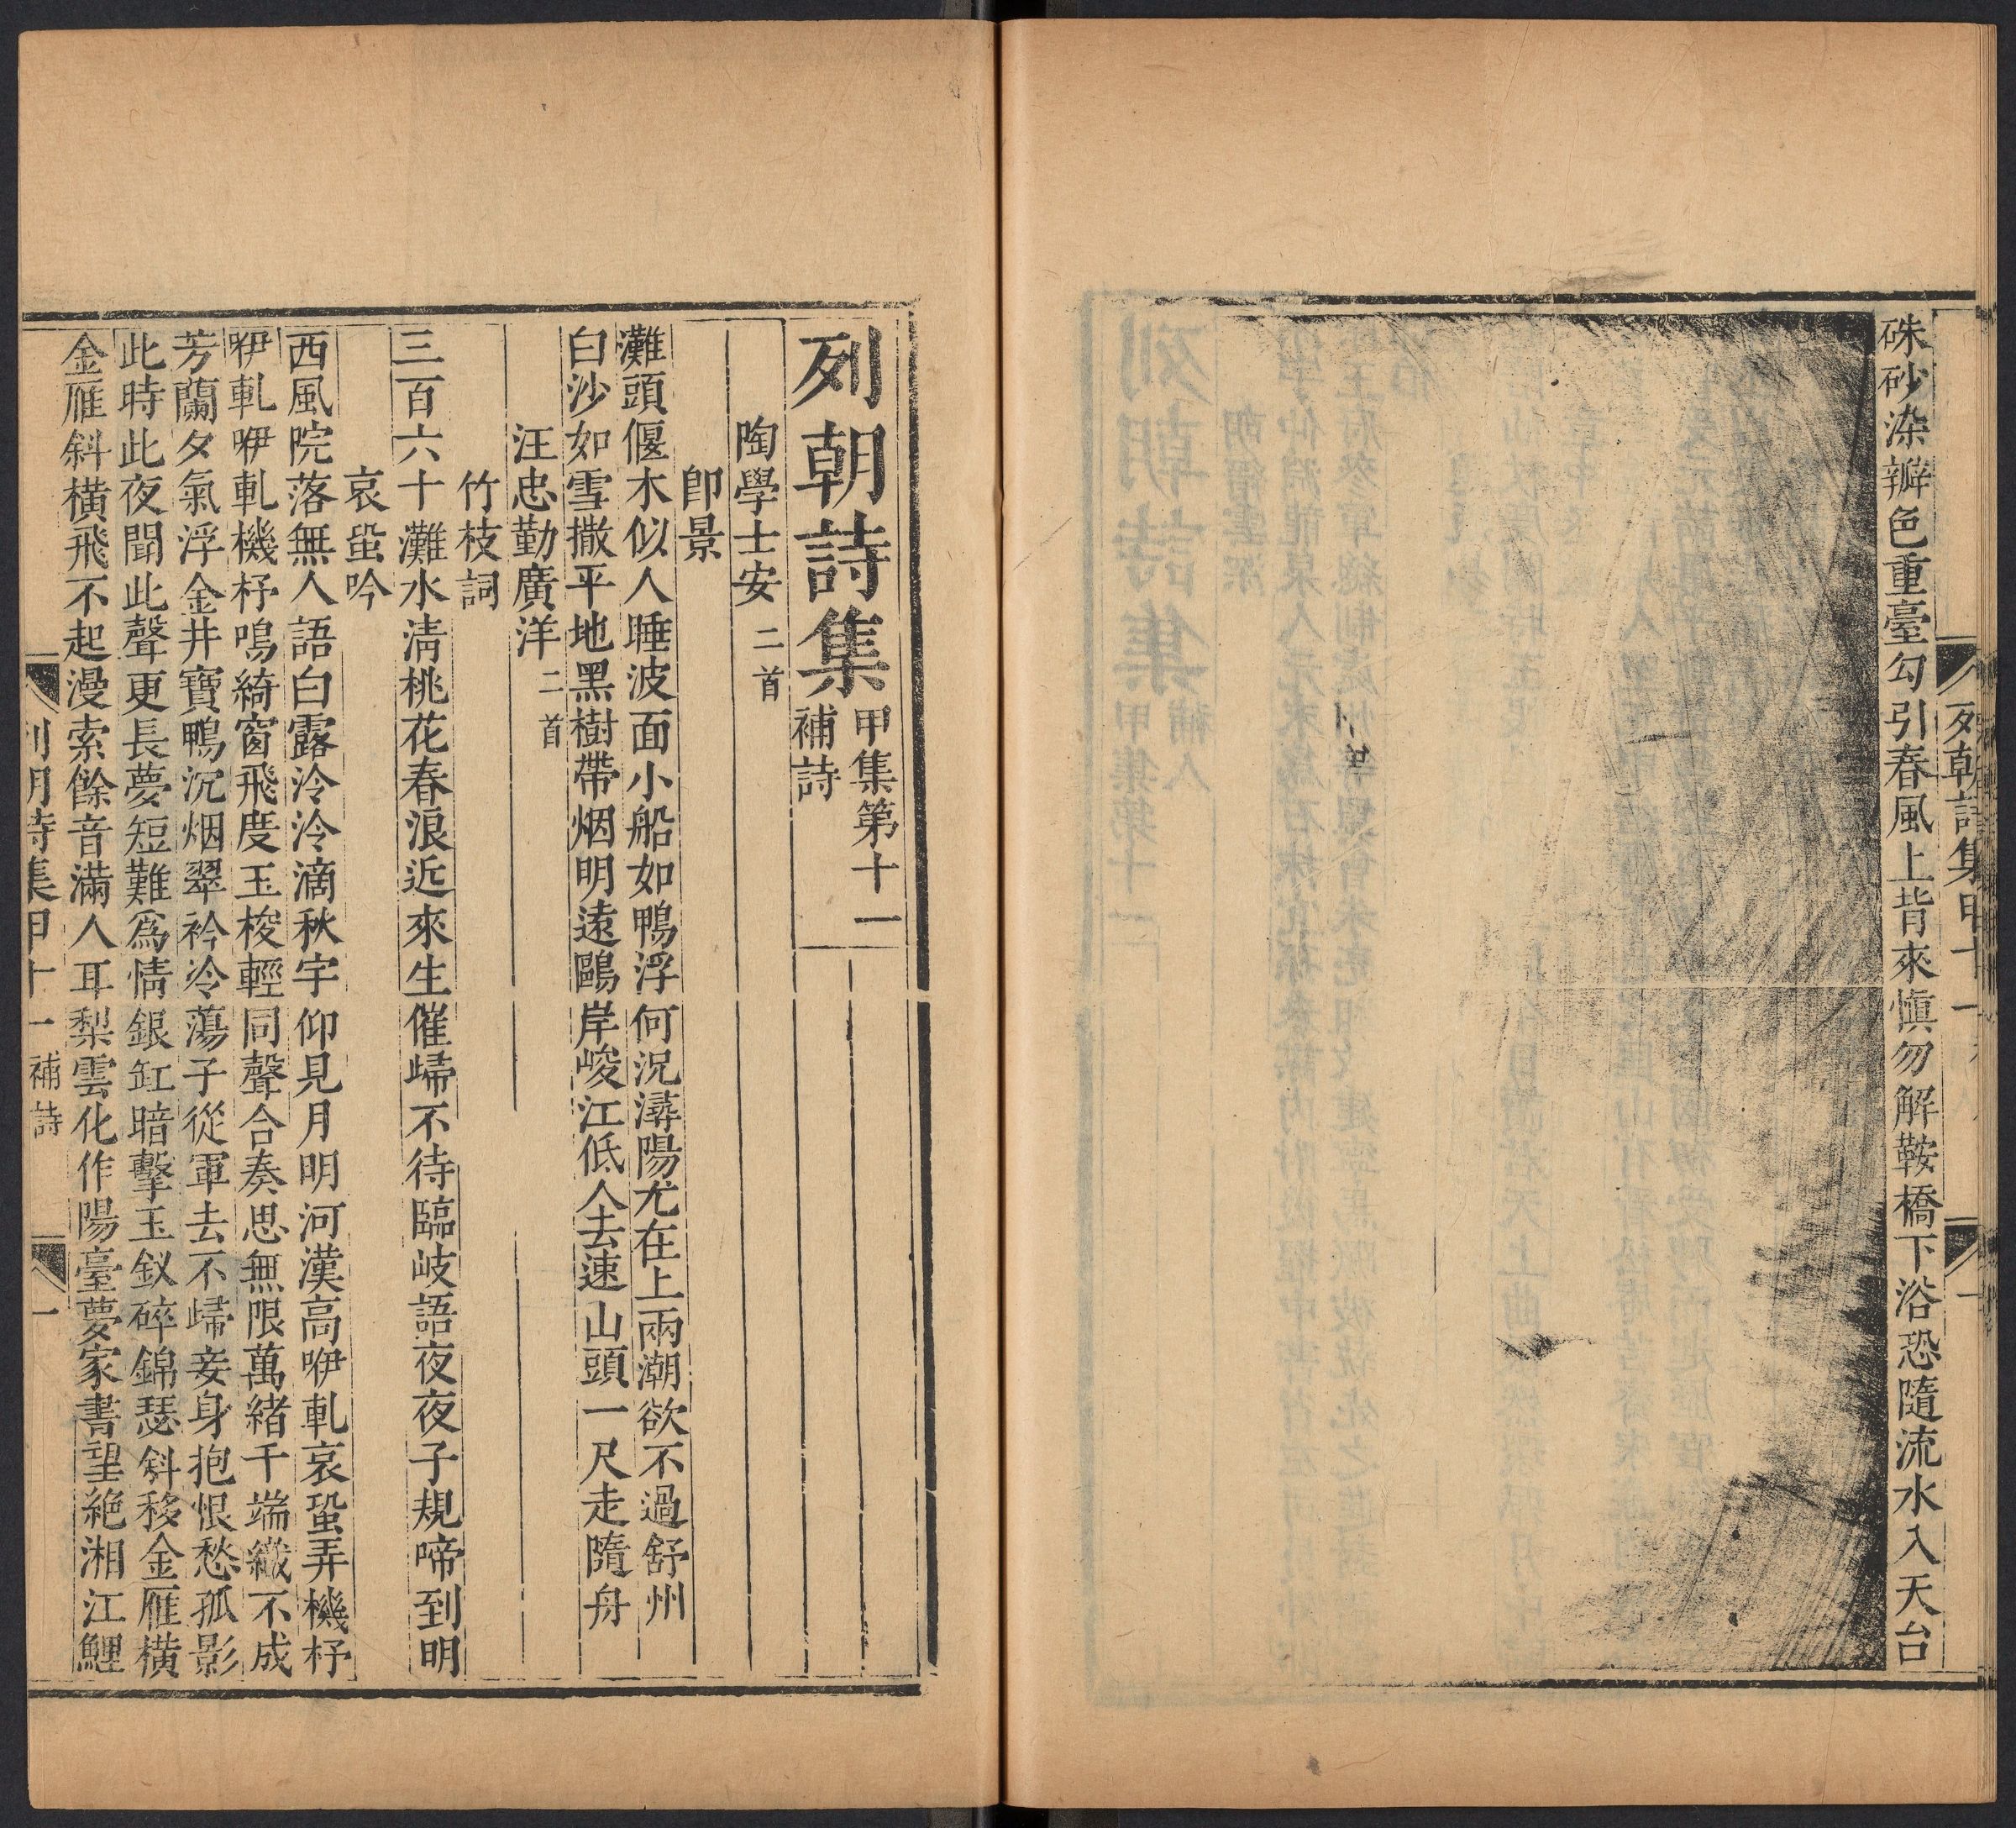 硃砂染瓣色重臺勾引春風上背來愼勿解鞍橋下浴恐隨流水入天台
列朝詩集甲十一
一
列朝詩集
甲集第十一
補詩
陶學士安 二首
卽景
灘頭偃木似人睡波面小船如鴨浮何況潯陽尤在上兩潮欲不過舒州
白沙如雪撒平地黑樹帶烟明遠鷗岸峻江低人去速山頭一尺走隨舟
汪忠勤廣洋 二首
竹枝詞
三百六十灘水淸桃花春浪近來生催歸不待臨岐語夜夜子規啼到明
哀蛩吟
西風院落無人語白露泠泠滴秋宇仰見月明河漢高咿軋哀蛩弄機杼
咿軋咿軋機杼鳴綺窗飛度玉梭輕同聲合奏思無限萬緒千端織不成
芳蘭夕氣浮金井寶鴨沉烟翠衿冷蕩子從軍去不歸妾身抱恨愁孤影
此時此夜聞此聲更長夢短難爲情銀缸暗擊玉釵碎錦瑟斜移金雁橫
金雁斜橫飛不起漫索餘音滿人耳梨雲化作陽臺夢家書望絶湘江鯉
列朝詩集甲十一 補詩
一